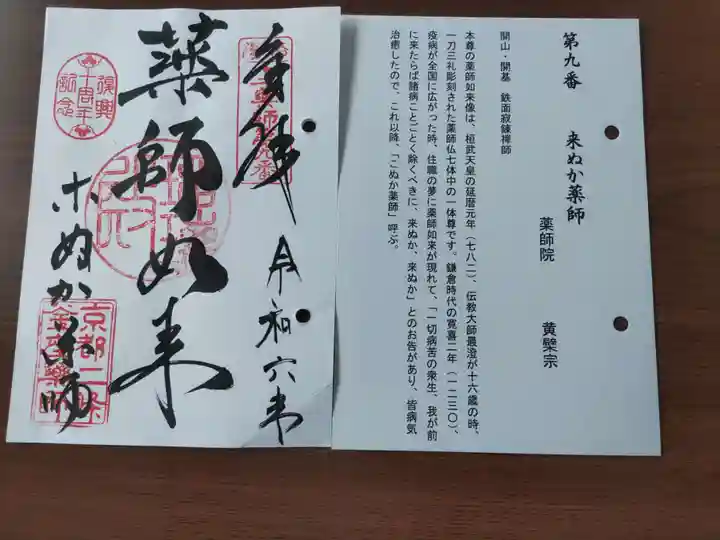 第九番　来ぬか薬師
薬師院　黄檗宗
開山・開基　鉄面寂錬禅師
本尊の薬師如来像は、桓武天皇の延暦元年（七八二）、伝教大師最澄が十六歳の時、
一刀三礼彫刻された薬師仏七体中の一体尊です。鎌倉時代の寛喜二年（一二三〇）、
疫病が全国に広がった時、住職の夢に薬師如来が現れて、「一切病苦の衆生、我が前
に来たらば諸病ことごとく除くべきに、来ぬか、来ぬか」とのお告があり、皆病気
治癒したので、これ以降、「こぬか薬師」呼ぶ。
奉拝
令和六年
薬師如来
こぬか薬師
復興
十周年
記念